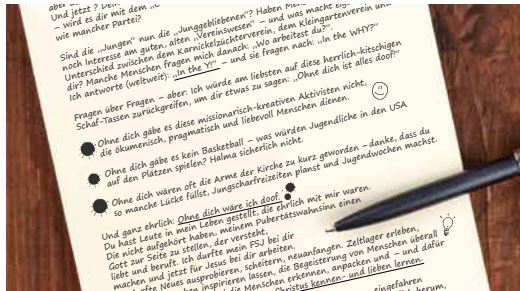 Und jetzt ?
– wird es dir mit dem
wie mancher Partei?
Sind die „Jungen" nun die „Junggebliebenen"? Haben
noch Interesse am guten, alten „Vereinswesen" – und was macht
Unterschied zwischen dem Karnickelzüchterverein, dem Kleingartenverein und
dir? Manche Menschen fragen mich danach: „Wo arbeitest du?".
Ich antworte (weltweit): „In the Y!" – und sie fragen nach: „In the WHY?"
Fragen über Fragen – aber: Ich würde am liebsten auf diese herrlich-kitschigen
Schaf-Tassen zurückgreifen, um dir etwas zu sagen: „Ohne dich ist alles doof!"
Ohne dich gäbe es diese missionarisch-kreativen Aktivisten nicht,
die ökumenisch, pragmatisch und liebevoll Menschen dienen.
Ohne dich gäbe es kein Basketball – was würden Jugendliche in den USA
auf den Plätzen spielen? Halma sicherlich nicht.
Ohne dich wären oft die Arme der Kirche zu kurz geworden – danke, dass du
so manche Lücke füllst, Jungscharfreizeiten planst und Jugendwochen machst.
Und ganz ehrlich: Ohne dich wäre ich doof.
Du hast Leute in mein Leben gestellt, die ehrlich mit mir waren.
Die nicht aufgehört haben, meinem Pubertätswahnsinn einen
Gott zur Seite zu stellen, der versteht,
liebt und beruft. Ich durfte mein FSJ bei dir
machen und jetzt für Jesus bei dir arbeiten.
durfte Neues ausprobieren, scheitern, neuanfangen. Zeltlager erleben,
inspirieren lassen, die Begeisterung von Menschen überall
die Menschen erkennen, anpacken und – und dafür
Christus kennen- und lieben lernen.
eingefahren